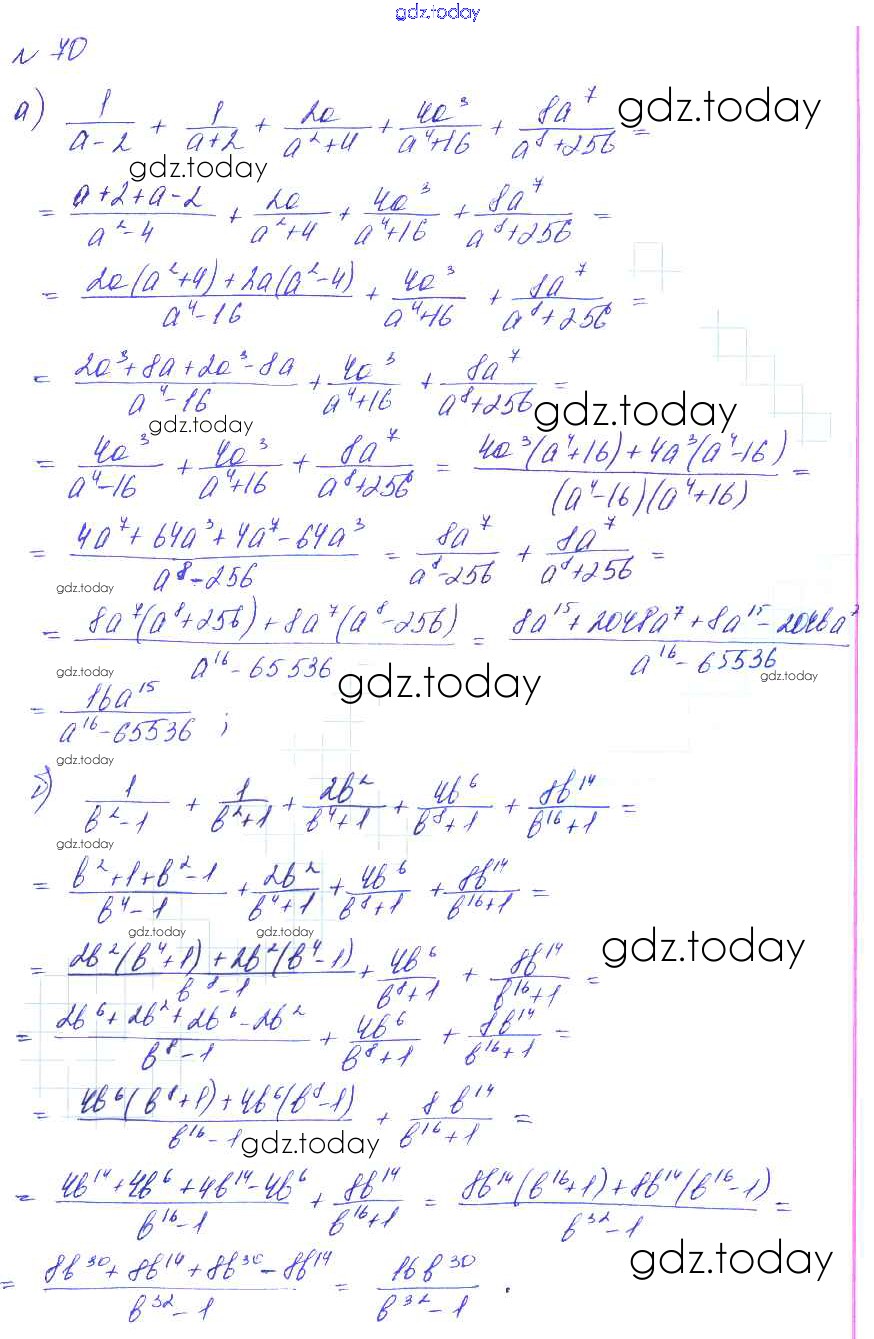 gdz.today
№ 70
а) 1/(a-2) + 1/(a+2) + 2a/(a²+4) + 4a³/(a⁴+16) + 8a⁷/(a⁸+256) =
gdz.today
gdz.today
= (a+2+a-2)/(a²-4) + 2a/(a²+4) + 4a³/(a⁴+16) + 8a⁷/(a⁸+256) =
= (2a(a²+4)+2a(a²-4))/(a⁴-16) + 4a³/(a⁴+16) + 8a⁷/(a⁸+256) =
= (2a³+8a+2a³-8a)/(a⁴-16) + 4a³/(a⁴+16) + 8a⁷/(a⁸+256) =
gdz.today
gdz.today
= 4a³/(a⁴-16) + 4a³/(a⁴+16) + 8a⁷/(a⁸+256) = (4a³(a⁴+16)+4a³(a⁴-16))/((a⁴-16)(a⁴+16)) =
= (4a⁷+64a³+4a⁷-64a³)/(a⁸-256) = 8a⁷/(a⁸-256) + 8a⁷/(a⁸+256) =
gdz.today
= (8a⁷(a⁸+256)+8a⁷(a⁸-256))/(a¹⁶-65536) = (8a¹⁵+2048a⁷+8a¹⁵-2048a⁷)/(a¹⁶-65536)
gdz.today
gdz.today
gdz.today
= 16a¹⁵/(a¹⁶-65536) ;
gdz.today
б) 1/(b²-1) + 1/(b²+1) + 2b²/(b⁴+1) + 4b⁶/(b⁸+1) + 8b¹⁴/(b¹⁶+1) =
gdz.today
= (b²+1+b²-1)/(b⁴-1) + 2b²/(b⁴+1) + 4b⁶/(b⁸+1) + 8b¹⁴/(b¹⁶+1) =
gdz.today
gdz.today
gdz.today
= (2b²(b⁴+1)+2b²(b⁴-1))/(b⁸-1) + 4b⁶/(b⁸+1) + 8b¹⁴/(b¹⁶+1) =
= (2b⁶+2b²+2b⁶-2b²)/(b⁸-1) + 4b⁶/(b⁸+1) + 8b¹⁴/(b¹⁶+1) =
= (4b⁶(b⁸+1)+4b⁶(b⁸-1))/(b¹⁶-1) + 8b¹⁴/(b¹⁶+1) =
gdz.today
= (4b¹⁴+4b⁶+4b¹⁴-4b⁶)/(b¹⁶-1) + 8b¹⁴/(b¹⁶+1) = (8b¹⁴(b¹⁶+1)+8b¹⁴(b¹⁶-1))/(b³²-1) =
gdz.today
= (8b³⁰+8b¹⁴+8b³⁰-8b¹⁴)/(b³²-1) = 16b³⁰/(b³²-1) .